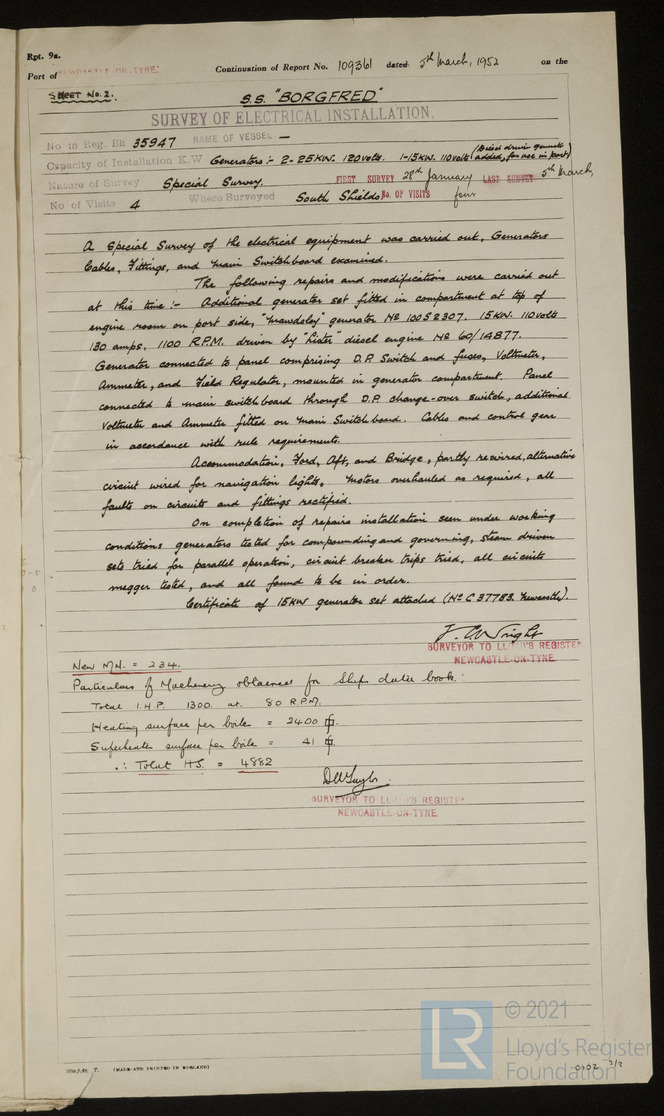 Rpt. 9a.
Port of NEWCASTLE-ON-TYNE. Continuation of Report No. 109361 dated 5th March, 1952 on the
SHEET No. 2.
S.S. "BORGFRED"
SURVEY OF ELECTRICAL INSTALLATION.
No in Reg. Bk 35947 NAME OF VESSEL —
Capacity of Installation K.W Generators :- 2-25KW. 120 volts. 1-15KW. 110 volts (Diesel driven generator added, for use in port)
Nature of Survey Special Survey. FIRST SURVEY 28th January LAST SURVEY 5th March,
No of Visits 4 Where Surveyed South Shields No. OF VISITS four
A Special Survey of the electrical equipment was carried out, Generators
Cables, Fittings, and Main Switchboard examined.
The following repairs and modifications were carried out
at this time :- Additional generator set fitted in compartment at top of
engine room on port side, "Mawdsley" generator No 10052307. 15KW. 110 volts
130 amps. 1100 R.P.M. driven by "Lister" diesel engine No 60/14877.
Generator connected to panel comprising D.P. Switch and fuses, Voltmeter,
Ammeter, and Field Regulator, mounted in generator compartment. Panel
connected to main switchboard through D.P. change-over switch, additional
Voltmeter and Ammeter fitted on Main Switchboard. Cables and control gear
in accordance with rule requirements.
Accommodation, Ford, Aft, and Bridge, partly rewired, alternative
circuit wired for navigation lights. Motors overhauled as required, all
faults on circuits and fittings rectified.
On completion of repairs installation seen under working
conditions generators tested for compounding and governing, steam driven
sets tried for parallel operation, circuit breaker trips tried, all circuits
megger tested, and all found to be in order.
Certificate of 15KW generator set attached (No C 37783. Newcastle).
J. C. Wright
SURVEYOR TO LLOYD'S REGISTER
NEWCASTLE-ON-TYNE.
New M.N. = 234.
Particulars of Machinery obtained for Ships data book :
Total I.H.P. 1300. at. 80 R.P.M.
Heating surface per boiler = 2400
Superheater surface per boiler = 41
∴ Total H.S. = 4882
SURVEYOR TO LLOYD'S REGISTER
NEWCASTLE-ON-TYNE.
(MADE AND PRINTED IN ENGLAND)
LR
© 2021
Lloyd's Register
Foundation
0102 2/2